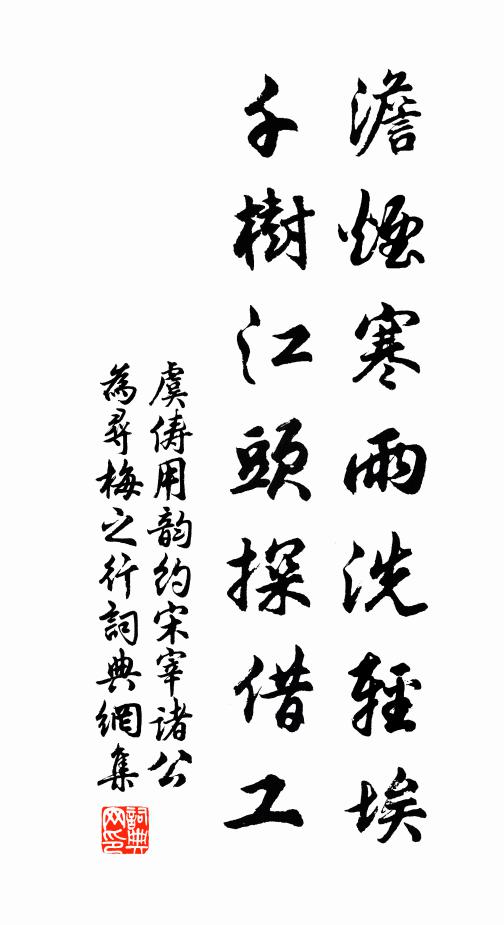 澹煙寒雨洗輕埃
千樹江頭探借工
虞儔用韵約宋宰诸公
為尋梅之行詞典網集
詞典
网印